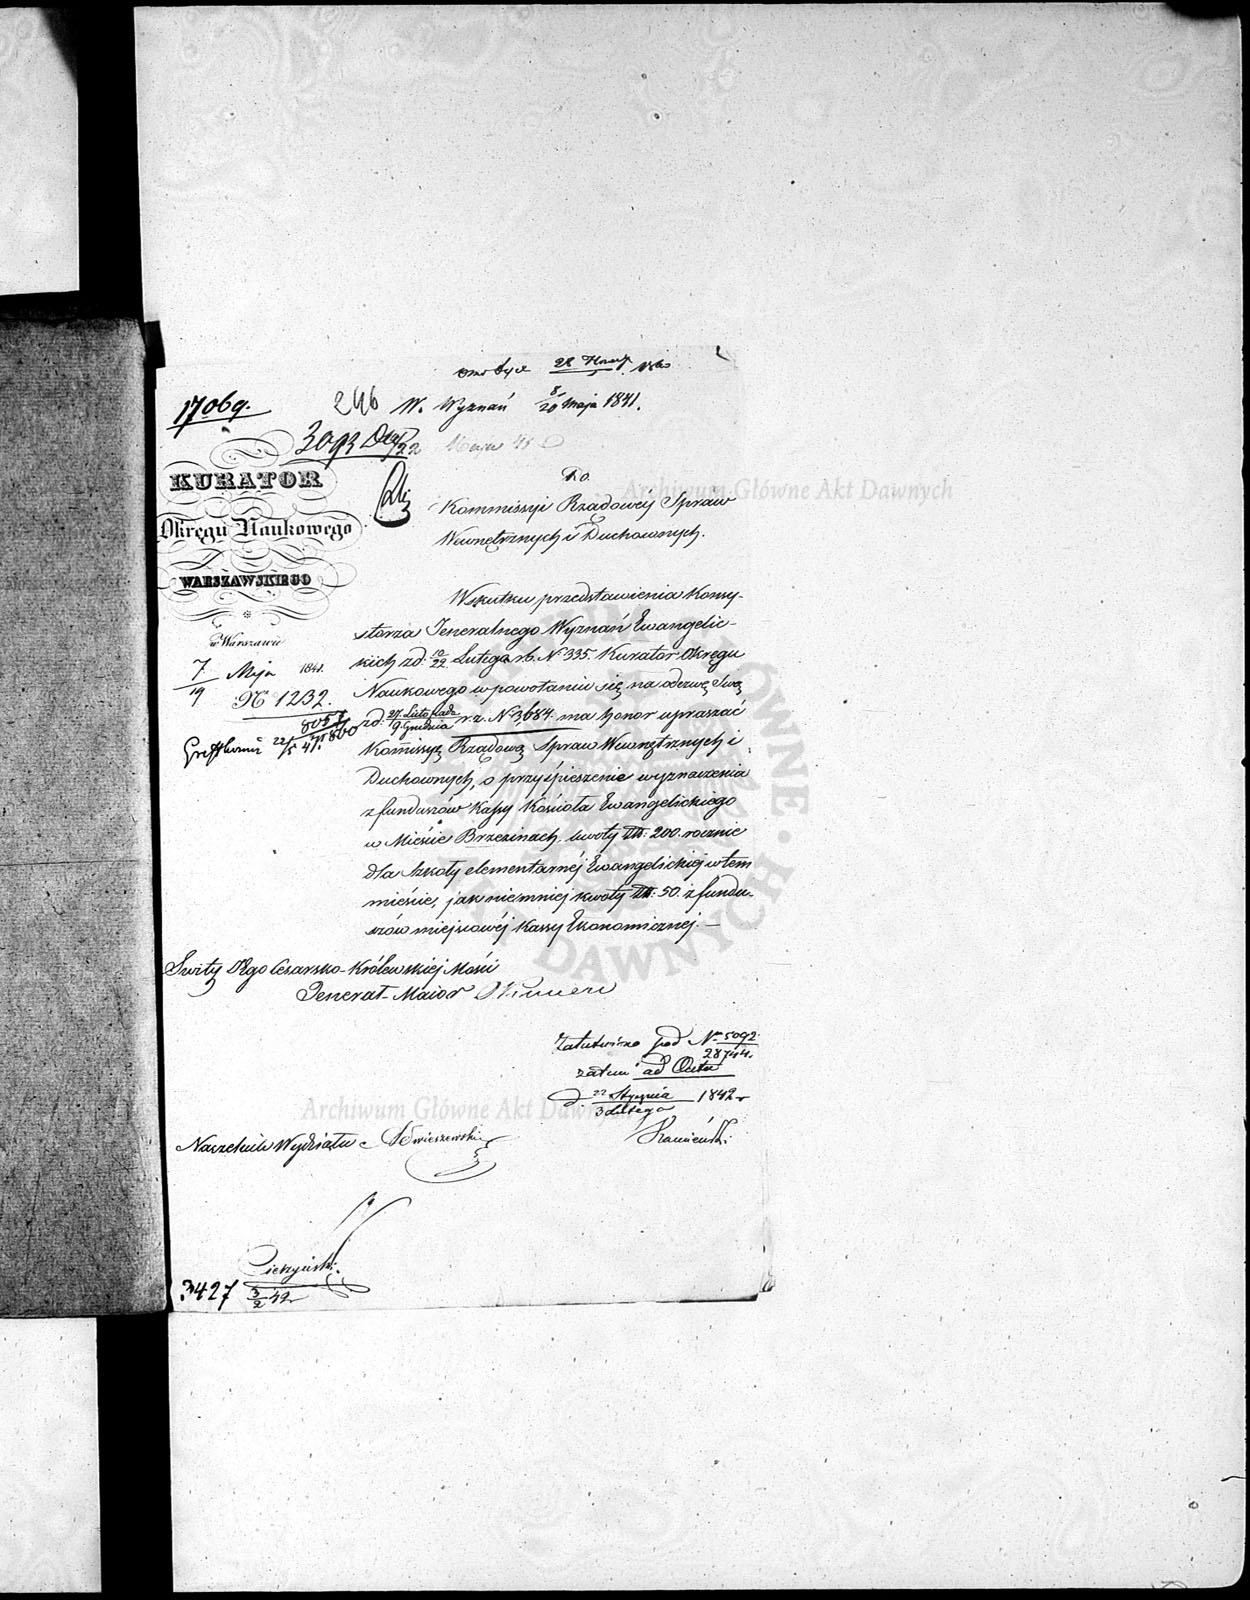 17069.
246 W. Wyznań 8/20 Maja 1841.
3093
KURATOR
Okręgu Naukowego
WARSZAWSKIEGO
w Warszawie
7/19 Maja 1841.
N 1232.
8057/47800
22/5 41.
Do
Kommissyi Rządowey Spraw
Wewnętrznych i Duchownych.
Wskutku przedstawienia Konsy-
storza Jeneralnego Wyznań Ewangelic-
kich zd: 10/22 Lutego r.b. N 335. Kurator Okręgu
Naukowego w powołaniu się na odezwę Swą
zd: 27 Listopada/9 Grudnia r.z. N 3,684. ma honor upraszać
Kommissyę Rządową Spraw Wewnętrznych i
Duchownych, o przyśpieszenie wyznaczenia
z funduszów Kassy Kościoła Ewangelickiego
w Mieście Brzezinach kwoty 200. rocznie
dla Szkoły elementarnéj Ewangelickiéj w tem
mieście, jak niemniej kwoty 50. z fundu-
szów miejscowéj Kassy Ekonomicznej. —
Świty Jego Cesarsko-Królewskiej Mości
Jenerał-Maior Okuniew
Załatwiono pod Nr 5092/28744.
zatem ad Acta
d. 22 Stycznia/3 Lutego 1842 r
Kamieński
Naczelnik Wydziału
Cieszyński.
3427 3/2 42
Archiwum Główne Akt Dawnych
Archiwum Główne Akt Dawnych